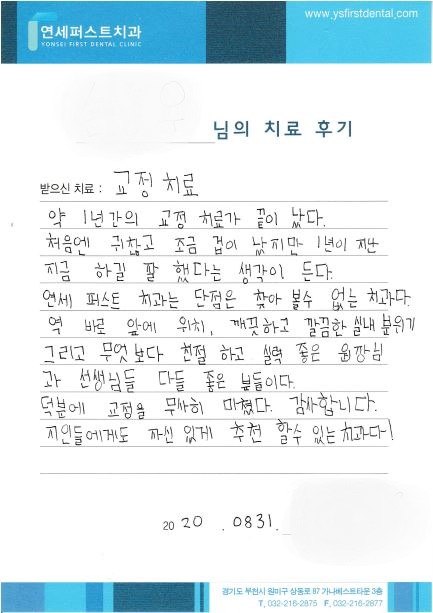 연세퍼스트치과
YONSEI FIRST DENTAL CLINIC
www.ysfirstdental.com
님의 치료 후기
받으신 치료 : 교정 치료
약 1년간의 교정 치료가 끝이 났다.
처음엔 귀찮고 조금 겁이 났지만 1년이 지난
지금 하길 잘 했다는 생각이 든다.
연세 퍼스트 치과는 단점은 찾아 볼수 없는 치과다
역 바로 앞에 위치, 깨끗하고 깔끔한 실내 분위기
그리고 무엇 보다 친절 하고 실력 좋은 원장님
과 선생님들 다들 좋은 분들이다.
덕분에 교정을 무사히 마쳤다. 감사합니다.
지인들에게도 자신 있게 추천 할수 있는 치과다!
2020 . 0831.
경기도 부천시 원미구 상동로 87 가나베스트타운 3층
T. 032-216-2875 F. 032-216-2877